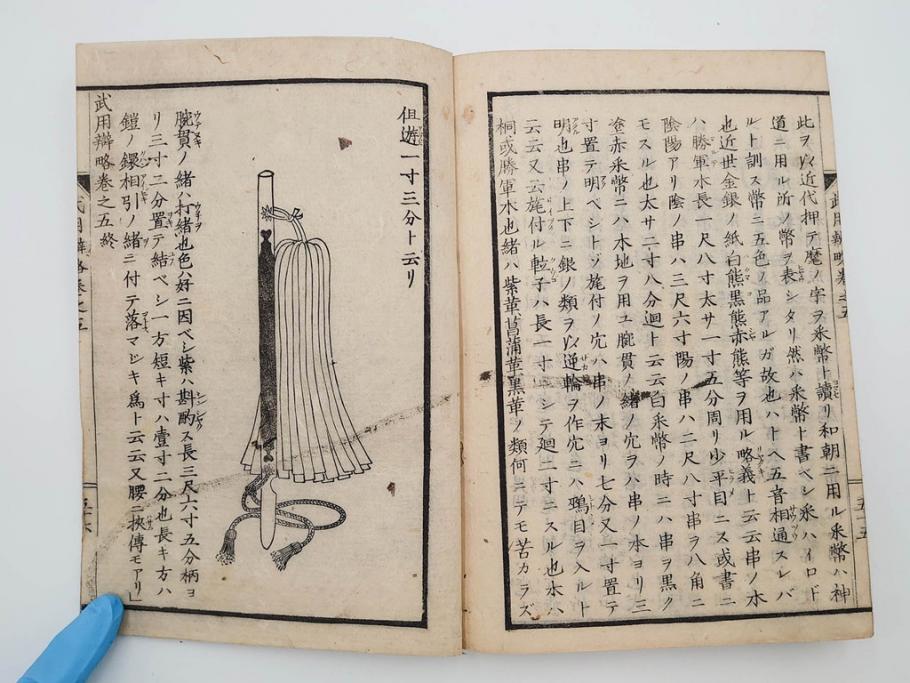 此ヲ以近代押テ麾ノ字ヲ采幣ト讀リ和朝ニ用ル采幣ハ神
道ニ用ル所ノ幣ヲ表シタリ然ハ采幣ト書ベシ采ハイロド
ルト訓ス幣ニ五色ノ品アルガ故也ハトヘ五音相通スレバ
也近世金銀ノ紙白熊黒熊赤熊等ヲ用ル略義ト云云串ノ木
ハ勝軍木長一尺八寸太サ一寸五分周リ少平目ニス或書ニ
陰陽アリ陰ノ串ハ三尺六寸陽ノ串ハ二尺八寸串ヲ八角ニ
モスル也太サ二寸八分迴ト云云白采幣ノ時ニハ串ヲ黒ク
塗赤采幣ニハ木地ヲ用ユ腕貫ノ緒ノ穴ヲハ串ノ本ヨリ三
寸置テ明ベシトゾ旄付ノ穴ハ串ノ末ヨリ七分又一寸置テ
明也串ノ上下ニ銀ノ類ヲ以逆輪ヲ作穴ニハ鵐目ヲ入ルト
云云又云旄付ル子ハ長一寸ニシテ廻二寸ニスル也木ハ
桐或勝軍木也緒ハ紫革菖蒲革黒革ノ類何ニテモ苦カラズ
武用辨略卷之五
五十五
但遊一寸三分ト云リ
腕貫ノ緒ハ打緒也色ハ好ニ因ベシ紫ハ斟酌ス長三尺六寸五分柄ヨ
リ三寸二分置テ結ベシ一方短キ寸ハ壹寸二分也長キ方ハ
鎧ノ鐶相引ノ緒ニ付テ落マジキ爲ト云云又腰ニ挾傳モアリ
武用辨略卷之五終
武用辨略卷之五
五十六